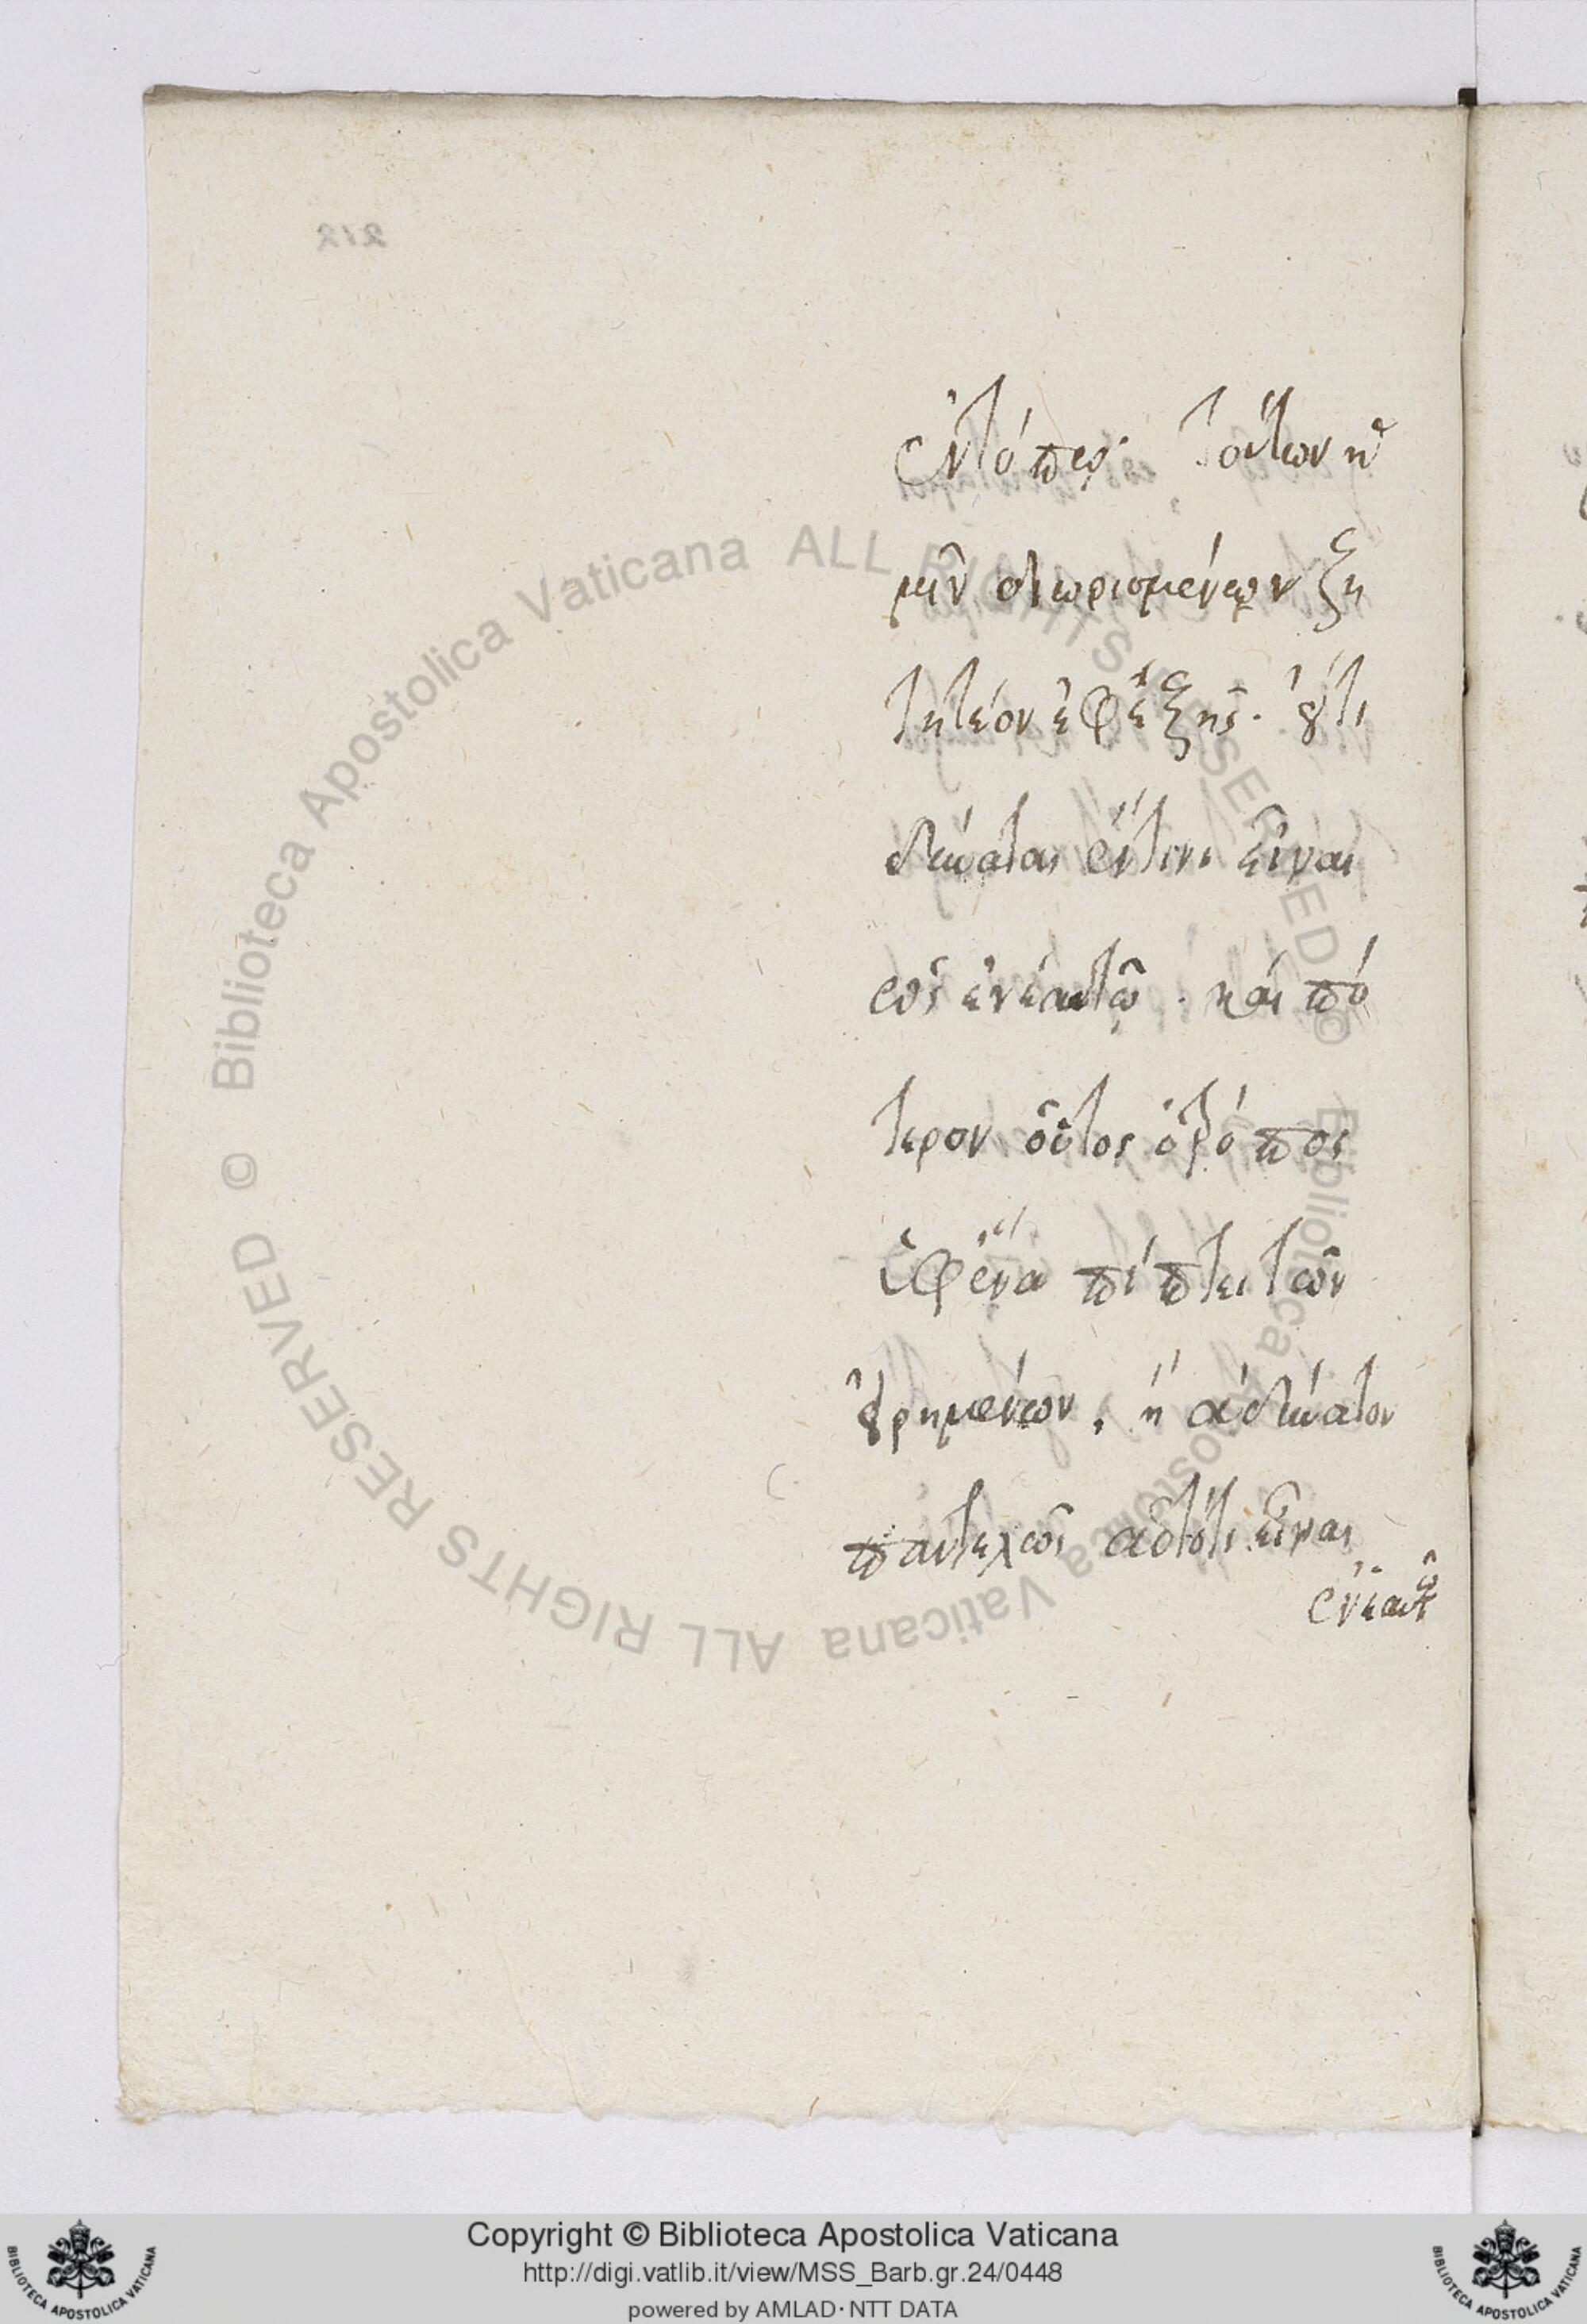 ἐν τόπῳ· τούτων ἡ
μῖν διωρισμένων ζη
τητέον ἐφεξῆς· εἴ τι
δύναται ἔν τινι εἶναι
ὡς ἐν ἑαυτῷ· καὶ πό
τερον οὗτος ὁ τρόπος
ἐφ' ἕνα πίπτει τῶν
εἰρημένων, ἢ ἀδύνατον
παντελῶς αὐτό τι εἶναι
ἐν ἑαυτῷ
212
Biblioteca Apostolica Vaticana ALL RIGHTS RESERVED ©
Biblioteca Apostolica Vaticana ALL RIGHTS RESERVED ©
Copyright © Biblioteca Apostolica Vaticana
http://digi.vatlib.it/view/MSS_Barb.gr.24/0448
powered by AMLAD·NTT DATA
BIBLIOTECA APOSTOLICA VATICANA
BIBLIOTECA APOSTOLICA VATICANA